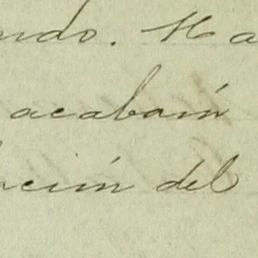 ndo. Ha
acabain
ación del